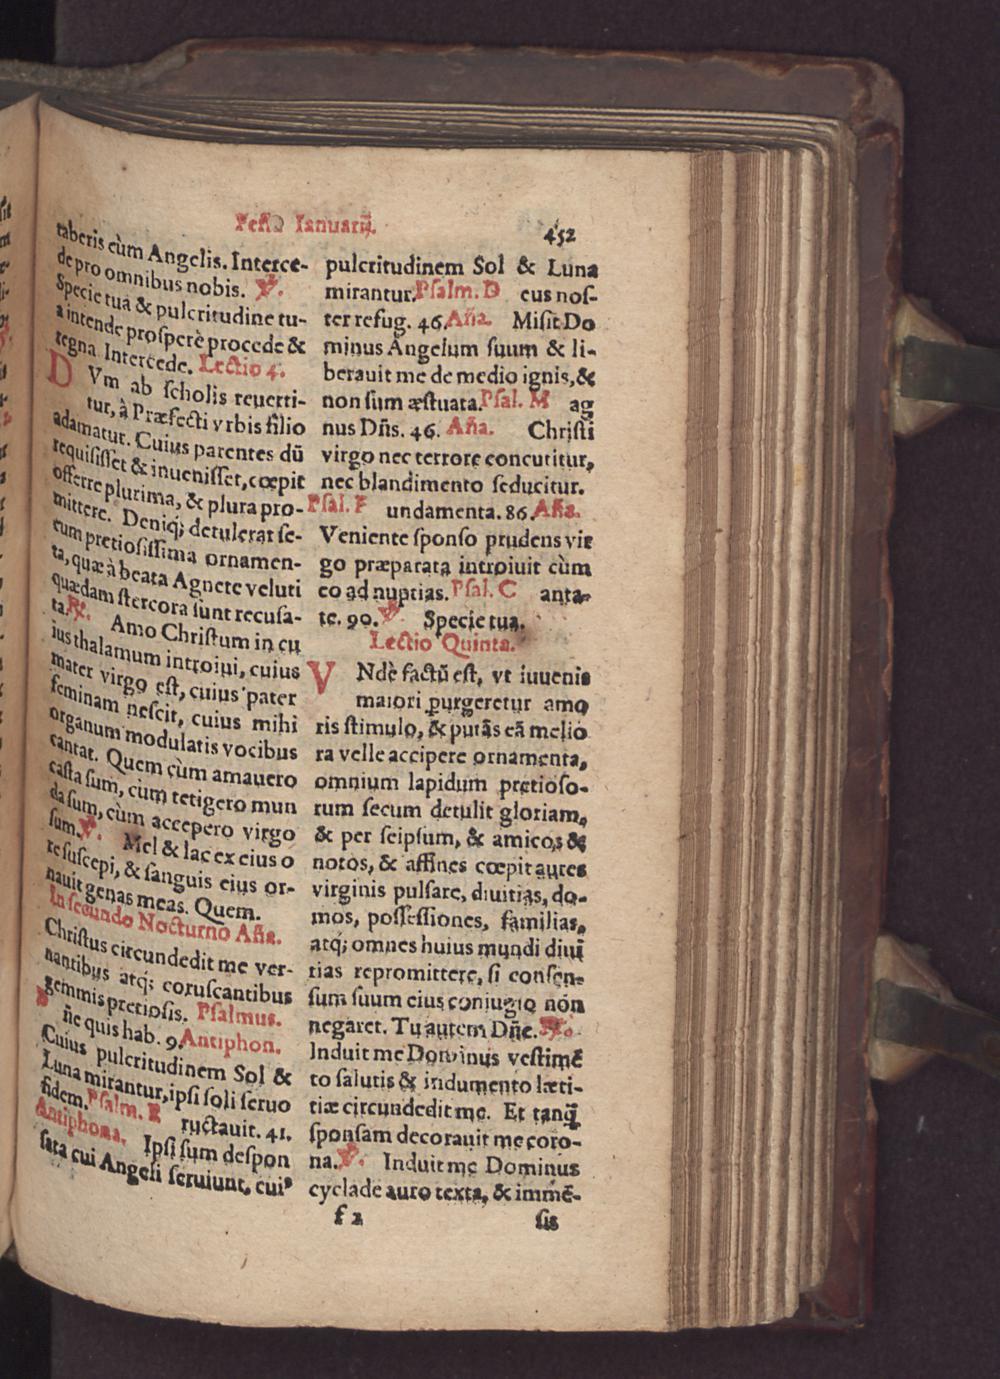 Festa Ianuarij.
452
taberis cùm Angelis. Interce-
de pro omnibus nobis. ℣.
Specie tua & pulcritudine tu-
a intende prosperè procede &
regna. Intercede. Lectio 4.
DVm ab scholis reuerti-
tur, à Præfecti vrbis filio
adamatur. Cuius parentes dũ
requisisset & inuenisset, cœpit
offerre plurima, & plura pro-
mittere. Deniq; detulerat se-
cum pretiosissima ornamen-
ta, quæ à beata Agnete veluti
quædam stercora sunt recusa-
ta. ℟. Amo Christum in cu
ius thalamum introiui, cuius
mater virgo est, cuius pater
feminam nescit, cuius mihi
organum modulatis vocibus
cantat. Quem cùm amauero
casta sum, cùm tetigero mun
da sum, cùm accepero virgo
sum. ℣. Mel & lac ex eius o
re suscepi, & sanguis eius or-
nauit genas meas. Quem.
In secundo Nocturno Aña.
Christus circundedit me ver-
nantibus atq; coruscantibus
gemmis pretiosis. Psalmus.
Dñe quis hab. 9. Antiphon.
Cuius pulcritudinem Sol &
Luna mirantur, ipsi soli seruo
fidem. Psalm. E ructauit. 41.
Antiphona. Ipsi sum despon
sata cui Angeli seruiunt, cuiꝰ
pulcritudinem Sol & Luna
mirantur. Psalm. D eus nos-
ter refug. 46. Aña. Misit Do
minus Angelum suum & li-
berauit me de medio ignis, &
non sum æstuata. Psal. M ag
nus Dñs. 46. Aña. Christi
virgo nec terrore concutitur,
nec blandimento seducitur.
Psal. F undamenta. 86. Aña.
Veniente sponso prudens vir
go præparata introiuit cùm
eo ad nuptias. Psal. C anta-
te. 90. ℣. Specie tua.
Lectio Quinta.
VNdè factũ est, vt iuuenis
maiori purgeretur amo
ris stimulo, & putãs eã melio
ra velle accipere ornamenta,
omnium lapidum pretioso-
rum secum detulit gloriam,
& per seipsum, & amicos &
notos, & affines cœpit aures
virginis pulsare, diuitias, do-
mos, possessiones, familias,
atq; omnes huius mundi diui
tias repromittere, si consen-
sum suum eius coniugio nón
negaret. Tu autem Dñe. ℟.
Induit me Dominus vestimẽ
to salutis & indumento læti-
tiæ circundedit me. Et tanq̃
sponsam decorauit me coro-
na. ℣. Induit me Dominus
cyclade auro texta, & immẽ-
f 2
sis